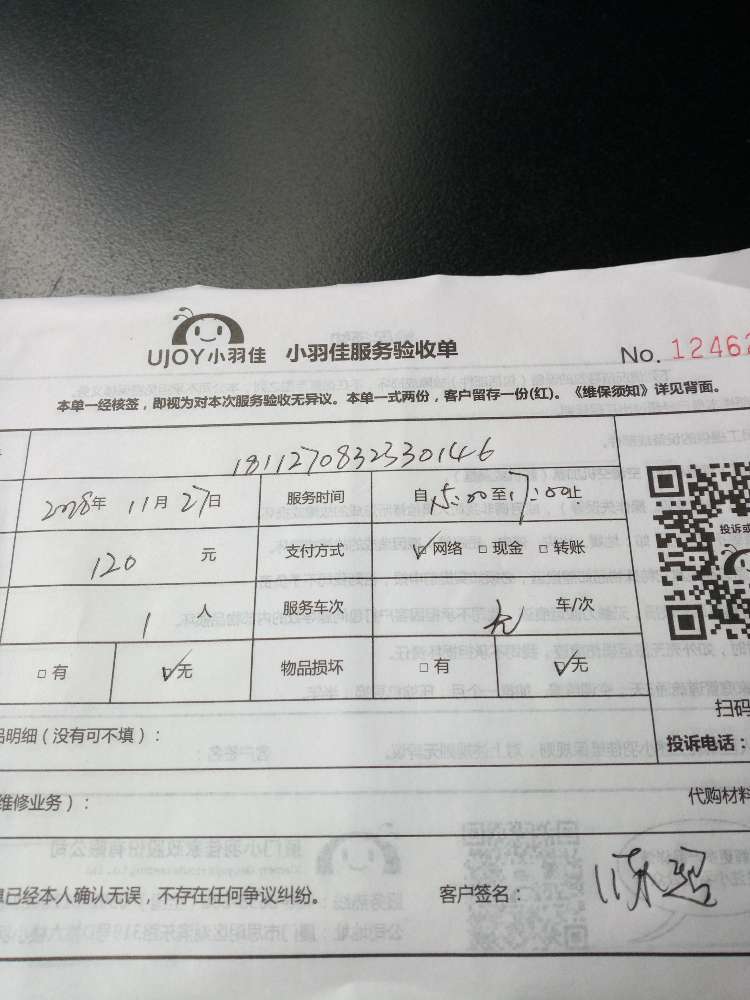 UJOY小羽佳 小羽佳服务验收单 No. 12462
本单一经核签，即视为对本次服务验收无异议。本单一式两份，客户留存一份(红)。《维保须知》详见背面。
18112708323330146
年 11月27日 服务时间 自15:00至17:00止
120 元 支付方式 ☑网络 □现金 □转账
1 人 服务车次 无 车/次
□有 ☑无 物品损坏 □有 ☑无
投诉或
扫码
品明细（没有可不填）： 投诉电话：
维修业务）： 代购材料
息已经本人确认无误，不存在任何争议纠纷。 客户签名：